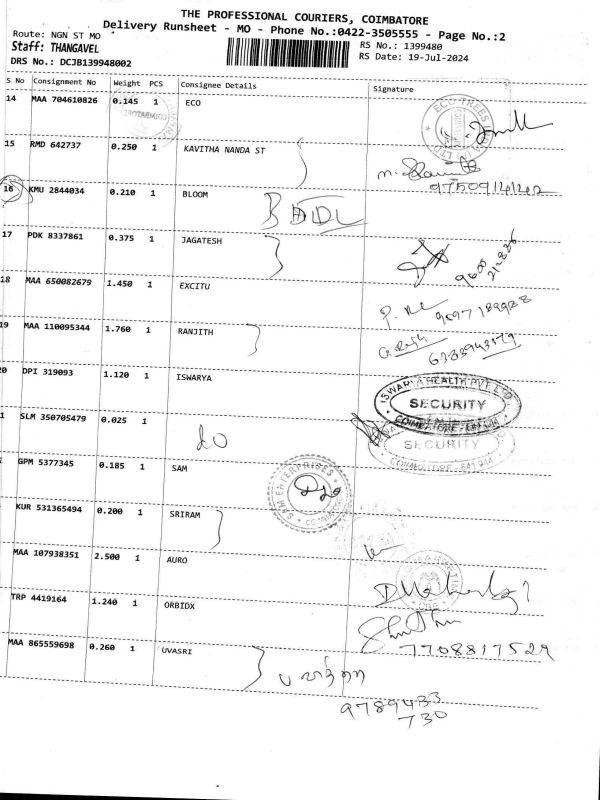 THE PROFESSIONAL COURIERS, COIMBATORE
Delivery Runsheet - MO - Phone No.:0422-3505555 - Page No.:2
Route: NGN ST MO
RS No.: 1399480
Staff: THANGAVEL
RS Date: 19-Jul-2024
DRS No.: DCJB139948002
S No Consignment No Weight PCS Consignee Details Signature
14 MAA 704610826 0.145 1 ECO
ECO-TREES
15 RMD 642737 0.250 1 KAVITHA NANDA ST
16 KMU 2844034 0.210 1 BLOOM
17 PDK 8337861 0.375 1 JAGATESH
18 MAA 650082679 1.450 1 EXCITU
19 MAA 110095344 1.760 1 RANJITH
20 DPI 319093 1.120 1 ISWARYA
ISWARYA HEALTH PVT LTD
SECURITY
COIMBATORE - 641 014
1 SLM 350705479 0.025 1
SECURITY
COIMBATORE - 641 014
GPM 5377345 0.185 1 SAM
SAM ENTERPRISES
KUR 531365494 0.200 1 SRIRAM
MAA 107938351 2.500 1 AURO
TRP 4419164 1.240 1 ORBIDX
7708817529
MAA 865559698 0.260 1 UVASRI
9789433
730